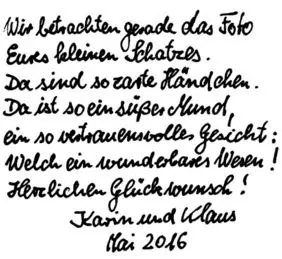 Wir betrachten gerade das Foto
Eures kleinen Schatzes.
Da sind so zarte Händchen.
Da ist so ein süßer Mund,
ein so vertrauensvolles Gesicht:
Welch ein wunderbares Wesen!
Herzlichen Glückwunsch!
Karin und Klaus
Mai 2016